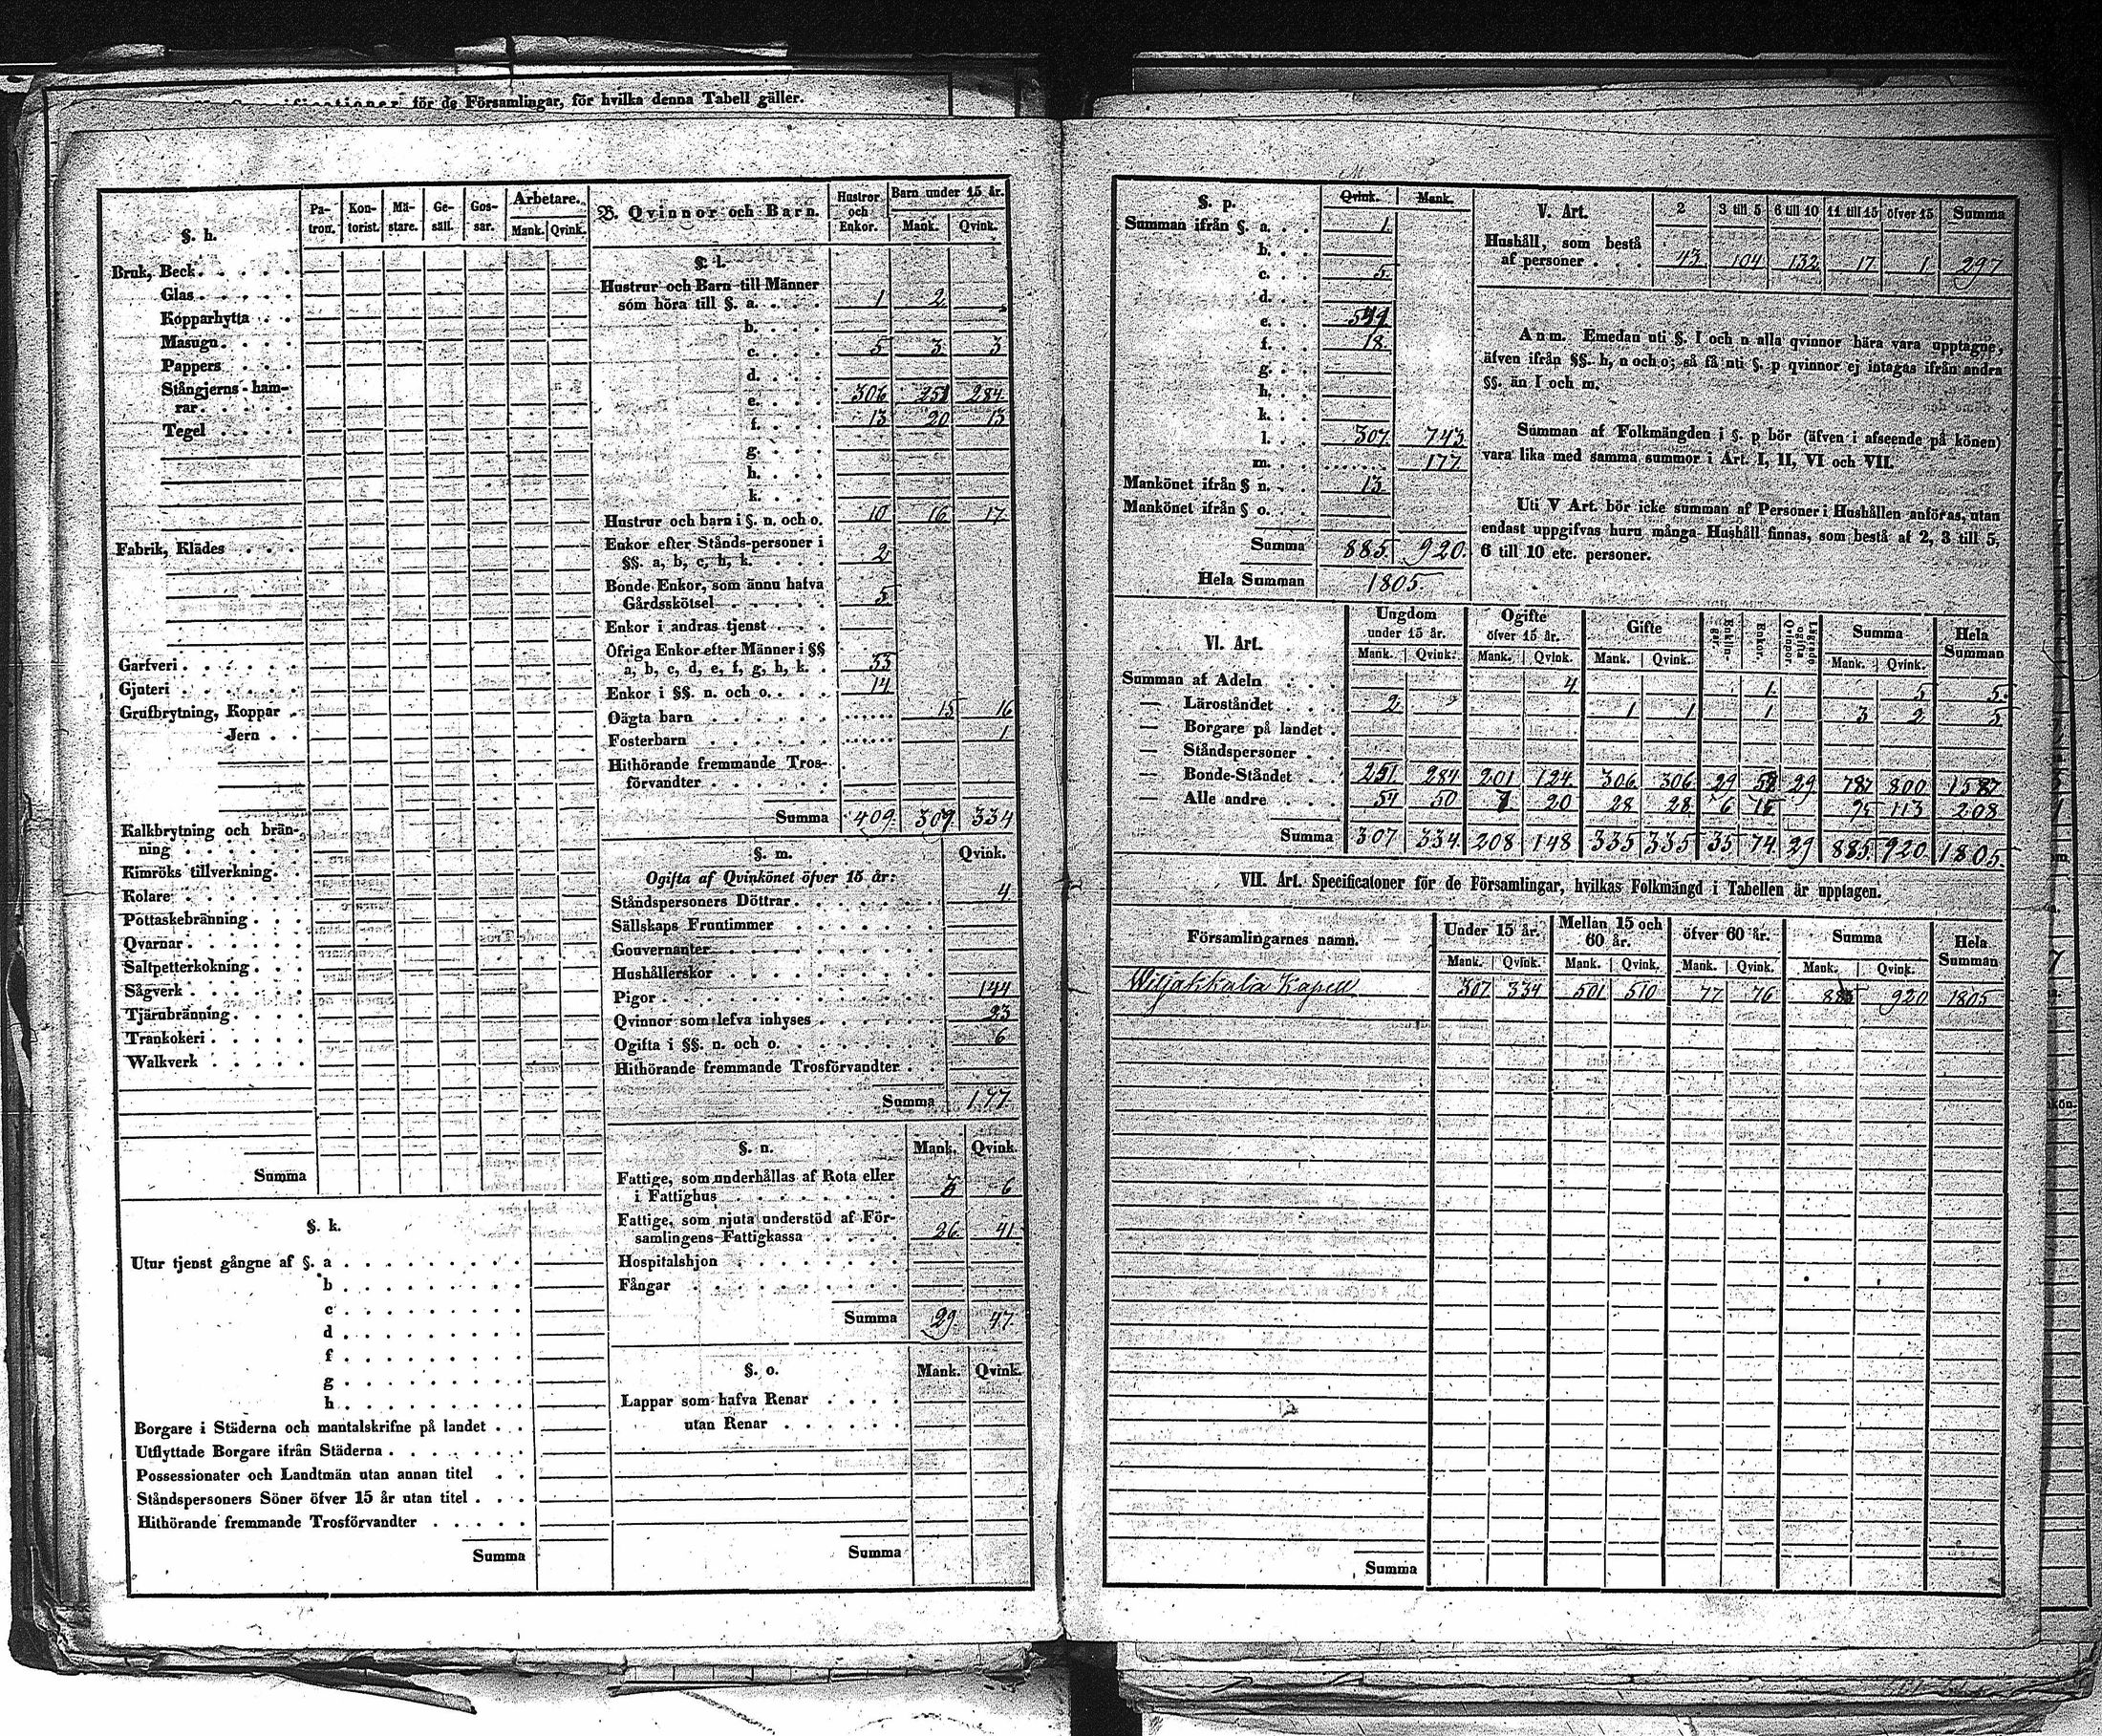 Specificationer för de Församlingar, för hvilka denna Tabell gäller.
§. h. Pa-tron. Kon-torist. Mä-stare. Ge-säll. Gos-sar. Arbetare. Mank. Qvink.
Bruk, Beck
Glas
Kopparhytta
Masugn
Pappers
Stångjerns-ham-
rar
Tegel
Fabrik, Klädes
Garfveri
Gjuteri
Grufbrytning, Koppar
Jern
Kalkbrytning och brän-
ning
Kimröks tillverkning
Kolare
Pottaskebränning
Qvarnar
Saltpetterkokning
Sågverk
Tjärubränning
Trankokeri
Walkverk
Summa
§. k.
Utur tjenst gångne af §. a
b
c
d
f
g
h
Borgare i Städerna och mantalskrifne på landet
Utflyttade Borgare ifrån Städerna
Possessionater och Landtmän utan annan titel
Ståndspersoners Söner öfver 15 år utan titel
Hithörande fremmande Trosförvandter
Summa
B. Qvinnor och Barn. Hustror och Enkor. Barn under 15 år. Mank. Qvink.
§. l.
Hustrur och Barn till Männer
som höra till §. a. 1 2
b.
c. 5 3 3
d.
e. 306 251 284
f. 13 20 13
g.
h.
k.
Hustrur och barn i §. n. och o. 10 16 17
Enkor efter Stånds-personer i
§§. a, b, c, h, k. 2
Bonde Enkor, som ännu hafva
Gårdsskötsel 5
Enkor i andras tjenst
Öfriga Enkor efter Männer i §§
a, b, c, d, e, f, g, h, k. 53
Enkor i §§. n. och o. 14
Oägta barn 15 16
Fosterbarn 1
Hithörande fremmande Tros-
förvandter
Summa 409 309 334
§. m. Qvink.
Ogifta af Qvinkönet öfver 15 år:
Ståndspersoners Döttrar 4
Sällskaps Fruntimmer
Gouvernanter
Hushållerskor
Pigor 144
Qvinnor som lefva inhyses 23
Ogifta i §§. n. och o. 6
Hithörande fremmande Trosförvandter
Summa 177
§. n. Mank. Qvink.
Fattige, som underhållas af Rota eller
i Fattighus 6
Fattige, som njuta understöd af För-
samlingens Fattigkassa 26 41
Hospitalshjon
Fångar
Summa 29 47
§. o. Mank. Qvink.
Lappar som hafva Renar
utan Renar
Summa
§. p. Qvink. Mank.
Summan ifrån §. a. 1
b.
c. 5
d.
e.
f. 18
g.
h.
k.
l. 307 743
m. 177
Mankönet ifrån § n. 13
Mankönet ifrån § o.
Summa 885 920
Hela Summan 1805
V. Art. 2 3 till 5 6 till 10 11 till 15 öfver 15 Summa
Hushåll, som bestå
af personer 43 104 132 17 1 297
Anm. Emedan uti §. l och n alla qvinnor böra vara upptagne,
äfven ifrån §§. h, n och o; så få uti §. p qvinnor ej intagas ifrån andra
§§. än l och m.
Summan af Folkmängden i §. p bör (äfven i afseende på könen)
vara lika med samma summor i Art. I, II, VI och VII.
Uti V Art. bör icke summan af Personer i Hushållen anföras, utan
endast uppgifvas huru många Hushåll finnas, som bestå af 2, 3 till 5,
6 till 10 etc. personer.
VI. Art. Ungdom under 15 år. Ogifte öfver 15 år. Gifte Enklin-gar. Enkor. Lägrade ogifta Qvinnor Summa Hela Summan
Mank. Qvink. Mank. Qvink. Mank. Qvink. Mank. Qvink.
Summan af Adeln 4 1 5 5
— Läroståndet 2 1 1 1 3 2 5
— Borgare på landet
— Ståndspersoner
— Bonde-Ståndet 251 284 201 124 306 306 29 29 787 800 1587
— Alle andre 54 50 7 20 28 28 6 15 95 113 208
Summa 307 334 208 148 335 335 35 74 29 885 920 1805
VII. Art. Specificationer för de Församlingar, hvilkas Folkmängd i Tabellen är upptagen.
Församlingarnes namn. Under 15 år. Mellan 15 och 60 år. öfver 60 år. Summa Hela Summan
Mank. Qvink. Mank. Qvink. Mank. Qvink. Mank. Qvink.
Wiljakkala Kapell 307 334 501 510 77 76 885 920 1805
Summa